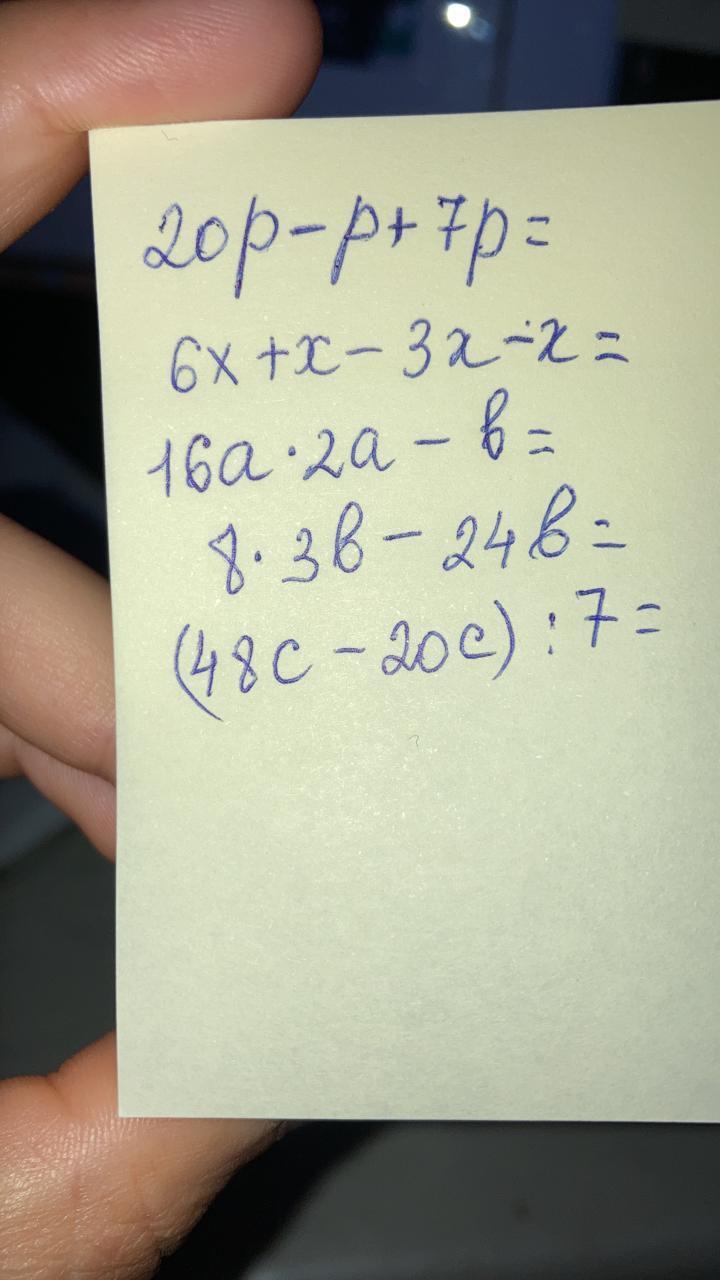 20p-p+7p=
6x+x-3x-x=
16a·2a-b=
8·3b-24b=
(48c-20c):7=